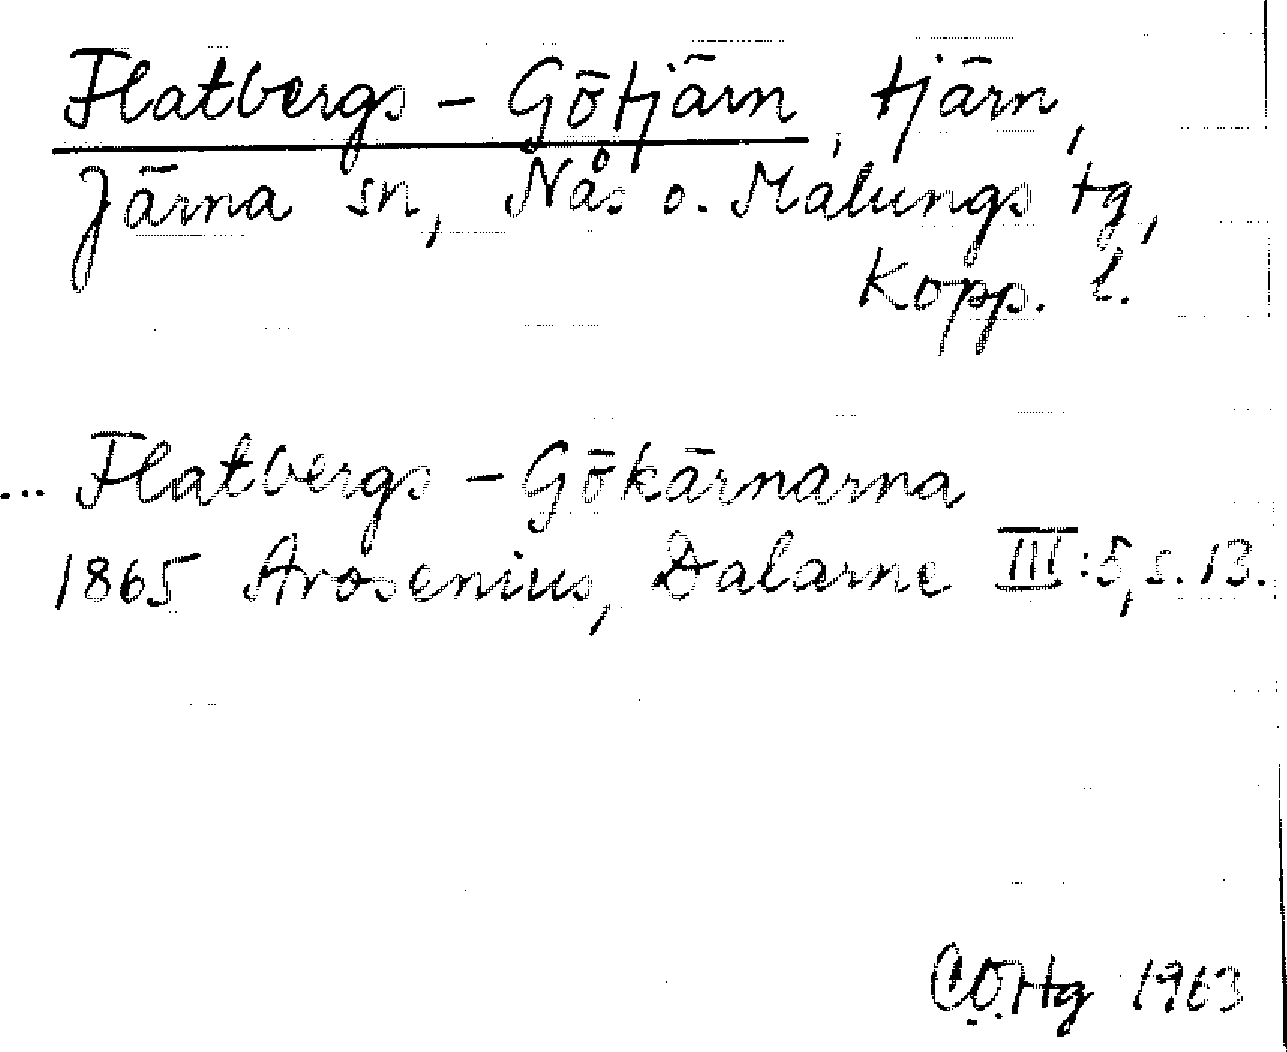 Flatbergs-Götjärn, tjärn,
Järna sn, Nås o. Malungs tg,
Kopp. l.
... Flatbergs-Gökärnarna
1865 Arosenius, Dalarne III:5, s. 13.
C.O.Hg 1963